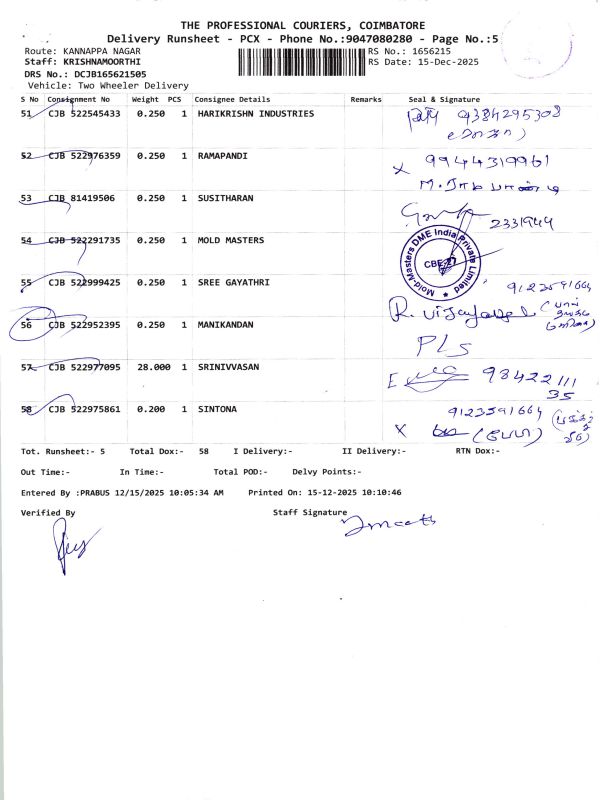 THE PROFESSIONAL COURIERS, COIMBATORE
Delivery Runsheet - PCX - Phone No.:9047080280 - Page No.:5
Route: KANNAPPA NAGAR RS No.: 1656215
Staff: KRISHNAMOORTHI RS Date: 15-Dec-2025
DRS No.: DCJB165621505
Vehicle: Two Wheeler Delivery
S No Consignment No Weight PCS Consignee Details Remarks Seal & Signature
51 CJB 522545433 0.250 1 HARIKRISHN INDUSTRIES 9384295308
52 CJB 522976359 0.250 1 RAMAPANDI X 9944319961
53 CJB 81419506 0.250 1 SUSITHARAN 2331944
54 CJB 522291735 0.250 1 MOLD MASTERS Mold-Masters DME India Private Limited CBE-27
55 CJB 522999425 0.250 1 SREE GAYATHRI 9123591664
R. Vijayavel
56 CJB 522952395 0.250 1 MANIKANDAN PLS
57 CJB 522977095 28.000 1 SRINIVVASAN E 98422111
35
58 CJB 522975861 0.200 1 SINTONA 9123591664
X
Tot. Runsheet:- 5 Total Dox:- 58 I Delivery:- II Delivery:- RTN Dox:-
Out Time:- In Time:- Total POD:- Delvy Points:-
Entered By :PRABUS 12/15/2025 10:05:34 AM Printed On: 15-12-2025 10:10:46
Verified By Staff Signature